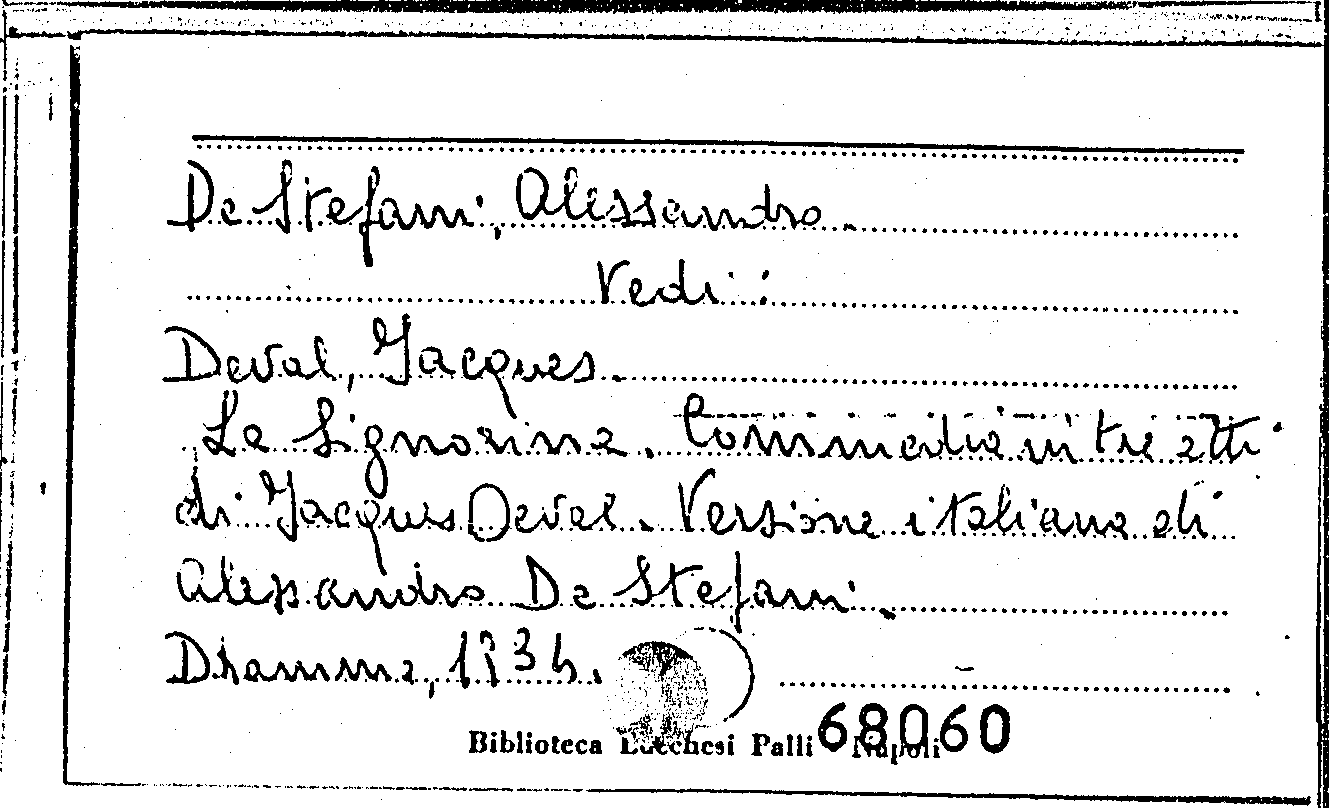 De Stefani, Alessandro.
Vedi:
Deval, Jacques.
La Signorina. Commedia in tre atti
di Jacques Deval. Versione italiana di
Alessandro De Stefani.
Dramma, 1934.
Biblioteca Lucchesi Palli Napoli
68060